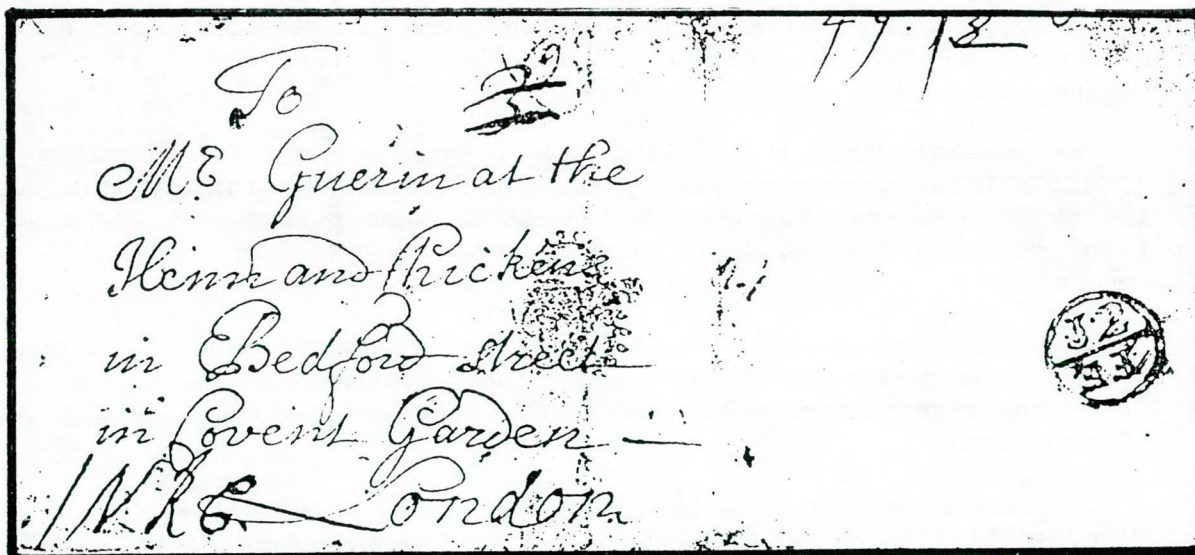 49 13
To
Mr Guerin at the
Henn and Chickens
in Bedford street
in Covent Garden
London